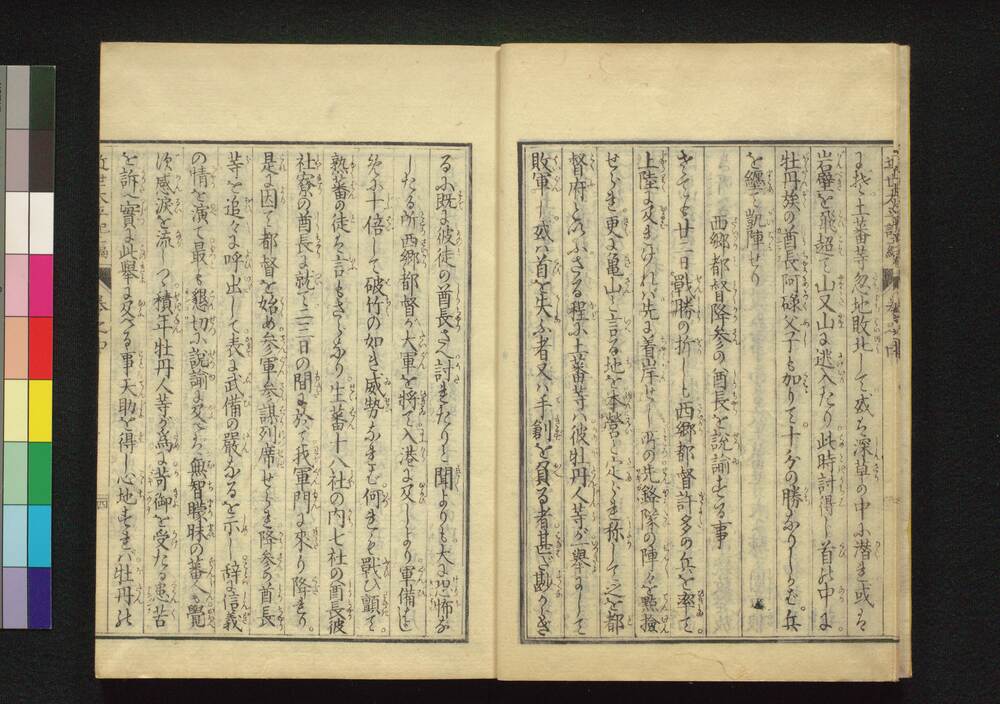 に我が土蕃等忽地敗北して或ひ深草の中に潜ミ或ハ
岩壘を飛超て山又山に逃入たり此時討得し首の中に
牡丹族の酋長阿碌父子も加りて十分の勝なりしかば。兵
を纏て凱陣せり
西郷都督降参の酋長を説諭する事
さても廿二日戰勝の折しも西郷都督許多の兵を率て
上陸に及まけれバ先に着岸せし所の先鋒隊の陣々を點撿
せられ更に亀山と言る地を本營と定られ称して之を都
督府といふさる程に土蕃等ハ彼牡丹人等が舉動して
敗軍し或ハ首を失ふ者又ハ手創を負る者甚だ尠からざ
るに既に彼徒の酋長さへ討れたりと聞よりも大に恐怖な
したる所西郷都督が大軍を將て入港に及しより軍備も
猶十倍して破竹の如き威勢なれば何れも戰ひ顫て
熟蕃の徒ハ言もさらなり生蕃十八社の内七社の酋長彼
社寮の酋長に就て二三日の間に於て我軍門に來り降れり。
是に因て都督を始め参軍参謀列席せられ降参の酋長
等を追々に呼出して表に武備の嚴なるを示し辞に信義
の情を演て最も懇切に説諭に及バれ無智矇昧の蕃人も覺
須感涙を流しつゝ積年牡丹人等が為に苛御を受たる患苦
を訴へ實に此舉に及べる事天助を得し心地すれバ牡丹の
巻之四
四